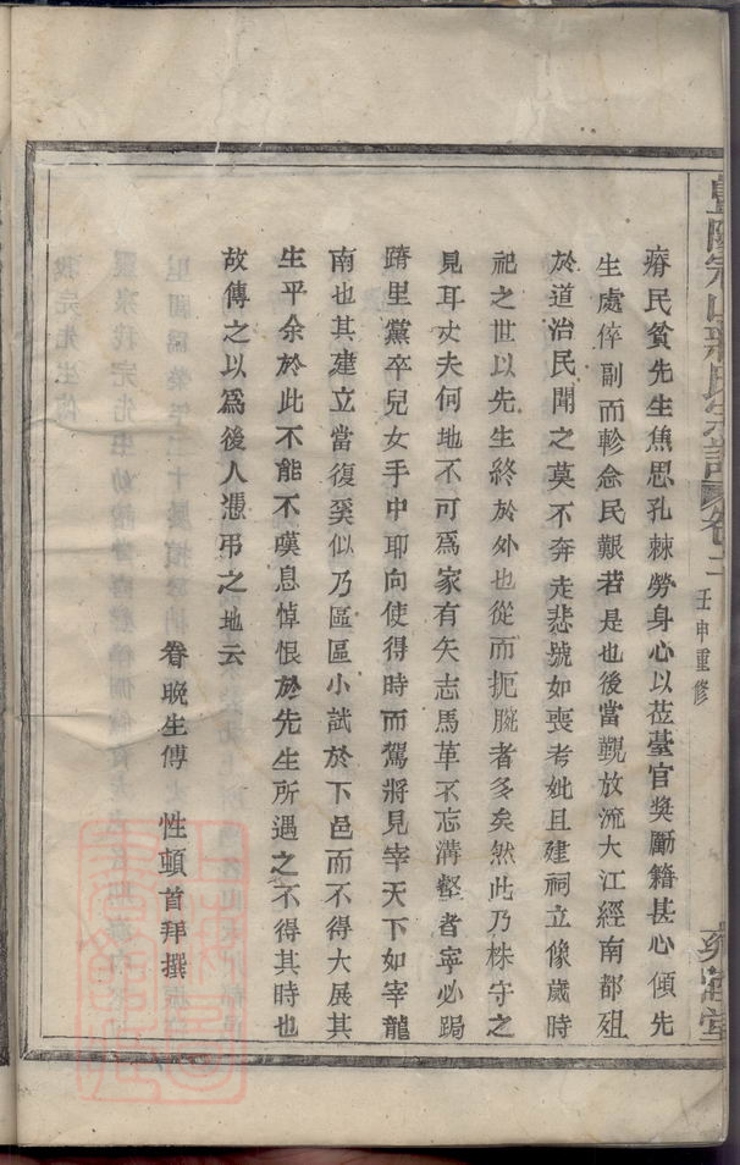 瘠民貧先生焦思孔棘勞身心以莅臺官奬勵籍甚心傾先
生處倅副而軫念民艱若是也後當覲放流大江經南都殂
於道治民聞之莫不奔走悲號如喪考妣且建祠立像歲時
祀之世以先生終於外也從而扼腕者多矣然此乃株守之
見耳丈夫何地不可爲家有矢志馬革不忘溝壑者寧必跼
蹐里黨卒兒女手中耶向使得時而駕將見宰天下如宰龍
南也其建立當復奚似乃區區小試於下邑而不得大展其
生平余於此不能不嘆息悼恨於先生所遇之不得其時也
故傳之以爲後人憑弔之地云
眷晩生傅 性頓首拜撰
卷二 壬申重修